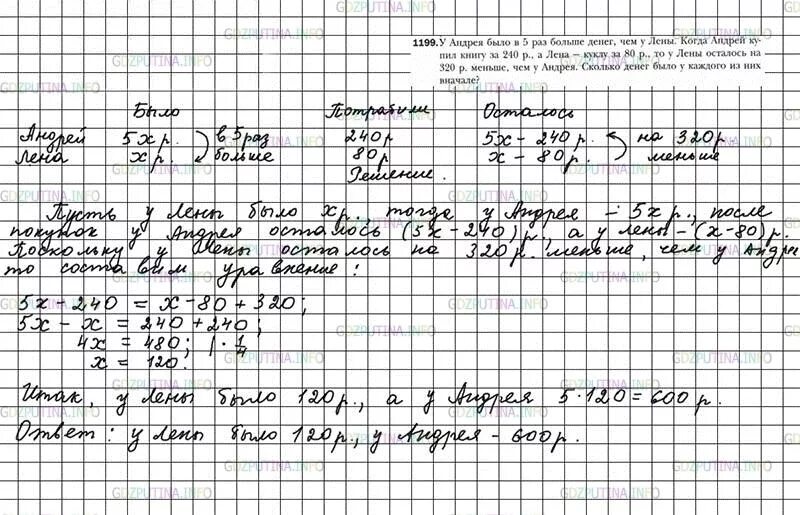 GDZPUTINA.INFO GDZPUTINA.INFO GDZPUTINA.INFO
1199. У Андрея было в 5 раз больше денег, чем у Лены. Когда Андрей ку-
пил книгу за 240 р., а Лена – куклу за 80 р., то у Лены осталось на
320 р. меньше, чем у Андрея. Сколько денег было у каждого из них
вначале?
Было Потратили Осталось
Андрей 5x р. в 5 раз 240р 5x - 240 р. на 320р.
Лена x р. больше 80р x - 80 р. меньше
Решение.
Пусть у Лены было x р., тогда у Андрея - 5x р., после
покупок у Андрея осталось (5x-240) р., а у Лены - (x-80) р.
Поскольку у Лены осталось на 320 р. меньше, чем у Андрея
то составим уравнение:
5x-240 = x-80+320;
5x-x = 240+240;
4x = 480; | · 1/4
x = 120.
Итак, у Лены было 120 р., а у Андрея 5·120=600 р.
Ответ: у Лены было 120р., у Андрея - 600р.
GDZPUTINA.INFO GDZPUTINA.INFO